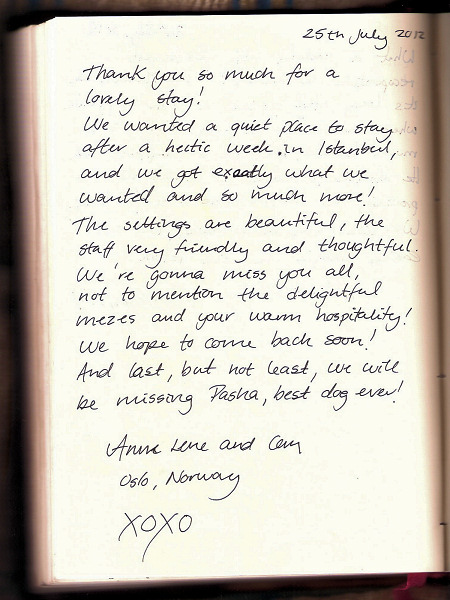 25th July 2012
Thank you so much for a
lovely stay!
We wanted a quiet place to stay
after a hectic week in Istanbul,
and we got exactly what we
wanted and so much more!
The settings are beautiful, the
staff very friendly and thoughtful.
We're gonna miss you all,
not to mention the delightful
mezes and your warm hospitality!
We hope to come back soon!
And last, but not least, we will
be missing Pasha, best dog ever!
Anne Lene and Cem
Oslo, Norway
XOXO